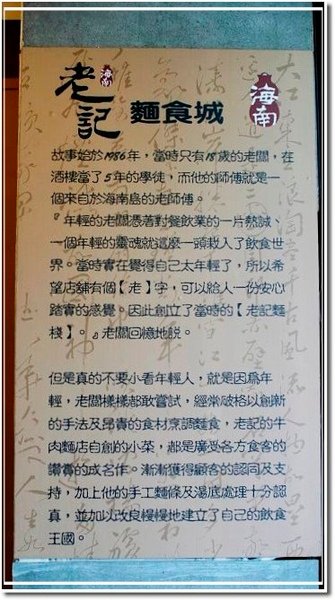 海南
老記 麵食城
海南
故事始於1986年，當時只有18歲的老闆，在
酒樓當了5年的學徒，而他的師傅就是一
個來自於海南島的老師傅。
『年輕的老闆憑著對餐飲業的一片熱誠、
一個年輕的靈魂就這麼一頭栽入了飲食世
界。當時實在覺得自己太年輕了，所以希
望店舖有個【老】字，可以給人一份安心
踏實的感覺。因此創立了當時的【老記麵
棧】。』老闆回憶地說。
但是真的不要小看年輕人，就是因為年
輕，老闆樣樣都敢嘗試，經常破格以創新
的手法及昂貴的食材烹調麵食，老記的牛
肉麵店自創的小菜，都是廣受各方食客的
讚賞的成名作。漸漸獲得顧客的認同及支
持，加上他的手工麵條及湯底處理十分認
真，並加以改良慢慢地建立了自己的飲食
王國。